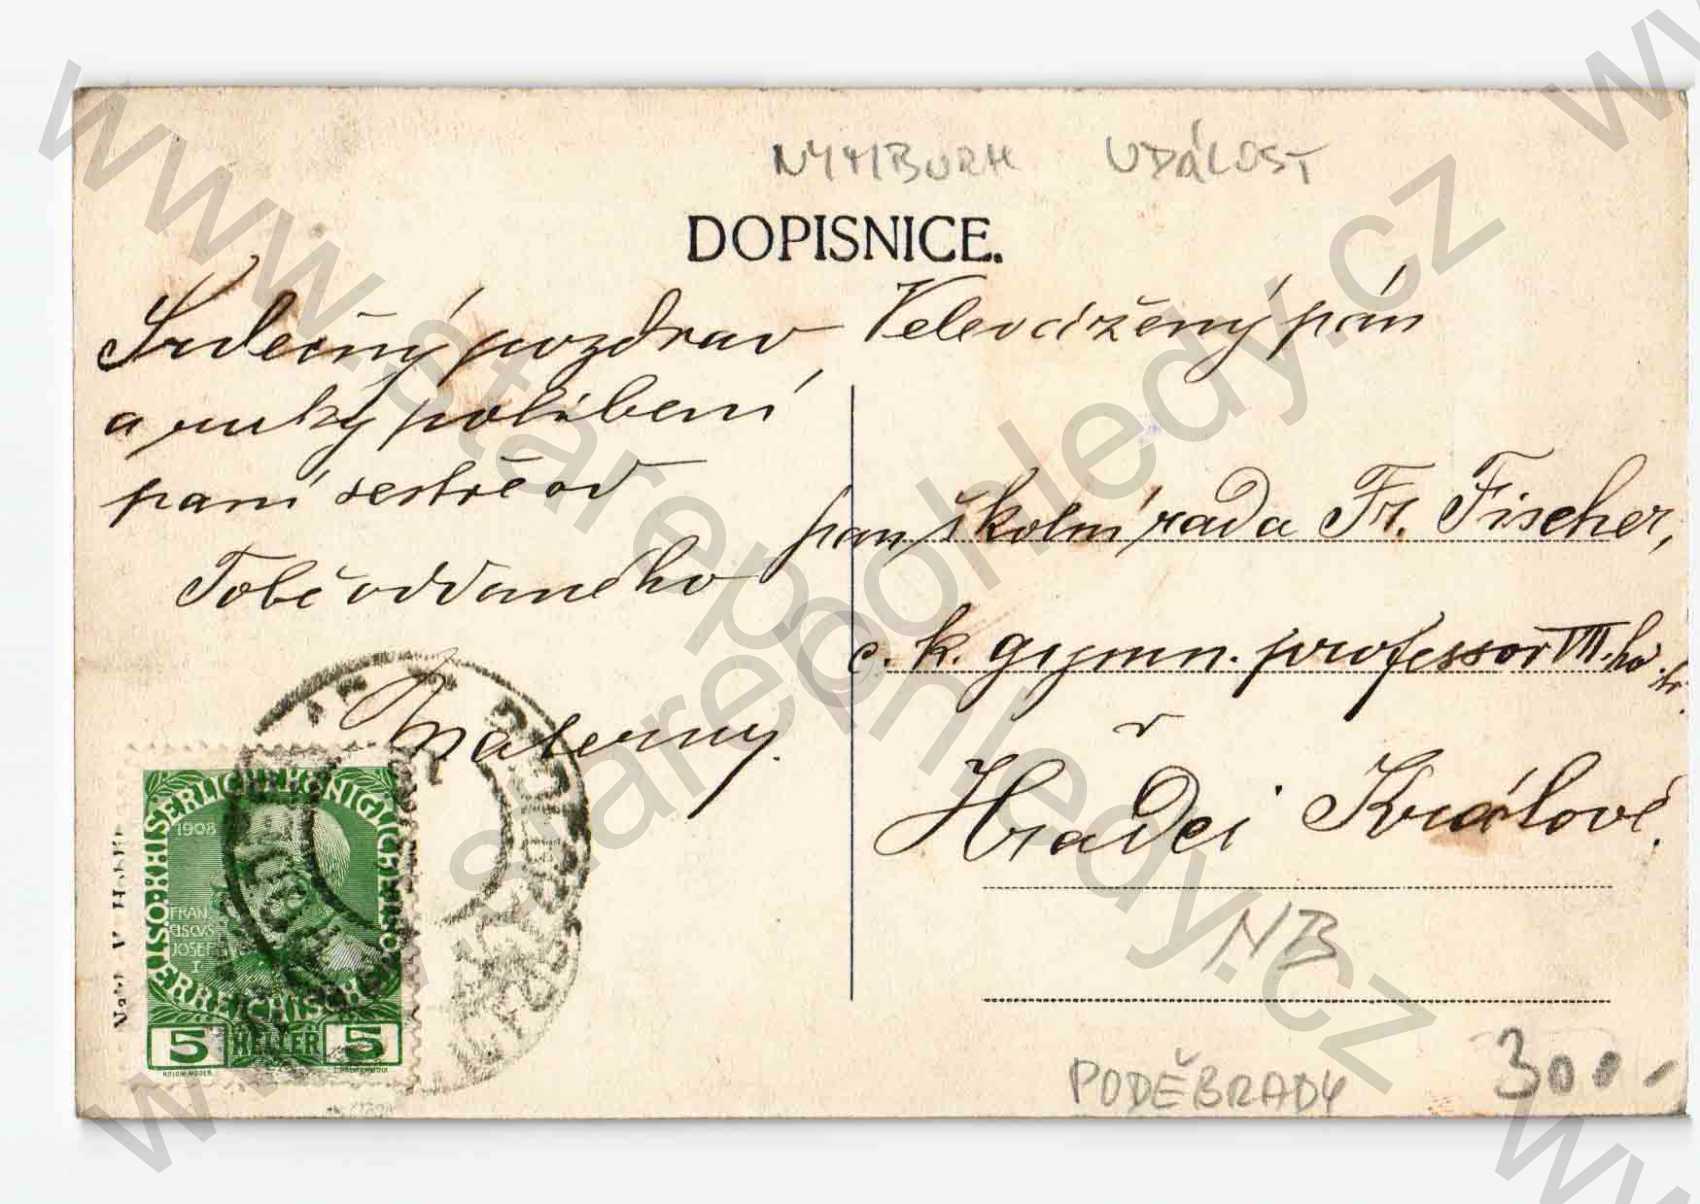 NYMBURK UDÁLOST
DOPISNICE.
Srdečný pozdrav
a ruky políbení
paní sestře od
Tobě oddaného
Materny.
Velevážený pán
pan školní rada Fr. Fischer,
c. k. gymn. professor VIII. ho
v
Hradci Králové.
NB
PODĚBRADY
300.-
KAISERLICHE KÖNIGLICHE ÖSTERREICHISCHE
1908
FRAN
CISCVS
JOSEF
I
5 HELLER 5
www.starepohledy.cz
www.starepohledy.cz